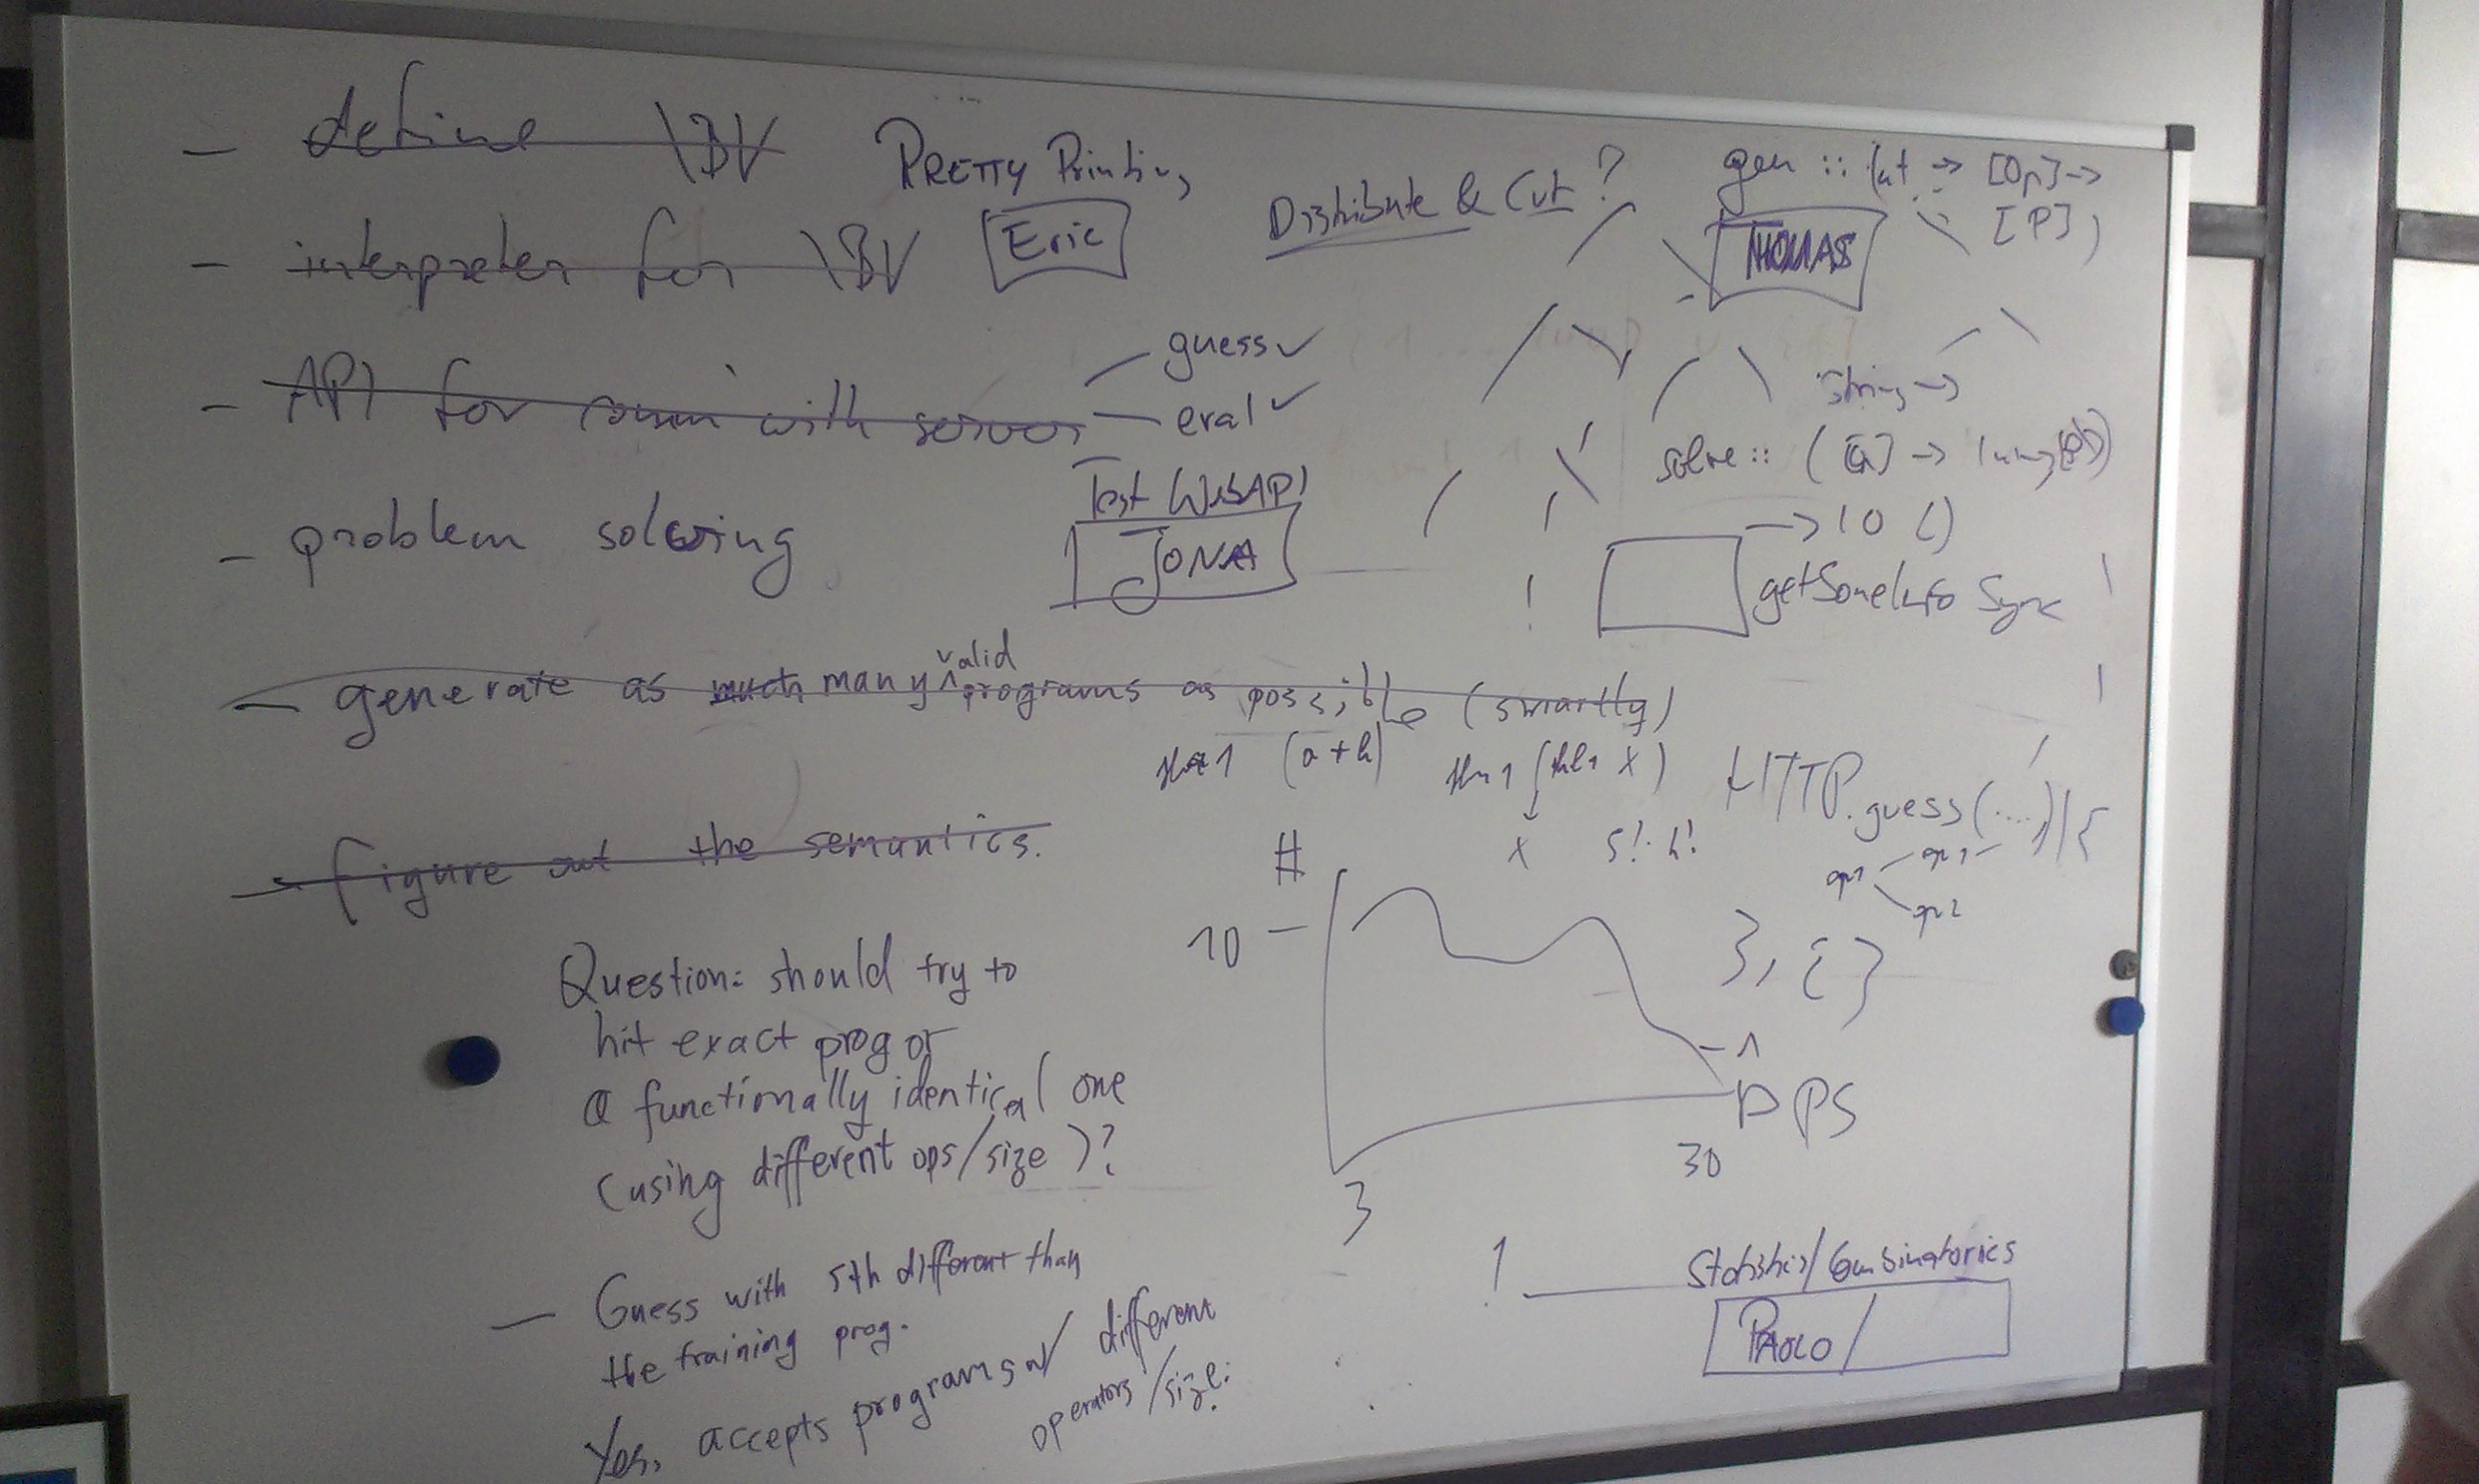 - define \BV
PRETTY Printing
- interpreter for \BV
Eric
Distribute & Cut?
gen :: Int -> [Op] ->
[P])
THOMAS
- API for comm with server
guess ✓
eval ✓
Test (WebAPI)
JONA
String ->
solve :: (
-> IO ()
getSomeInfo Sync
- problem solving
- generate as much many valid programs as possible (smartly)
HTTP.guess(....)|{
}, {}
- figure out the semantics.
#
10
1
PS
3
30
Question: should try to
hit exact prog or
a functionally identical one
(using different ops/size)?
- Guess with sth different than
the training prog.
Yes, accepts programs w/ different
operators/size.
Statistics/Combinatorics
PAOLO/